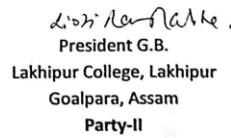 President G.B.
Lakhipur College, Lakhipur
Goalpara, Assam
Party-II